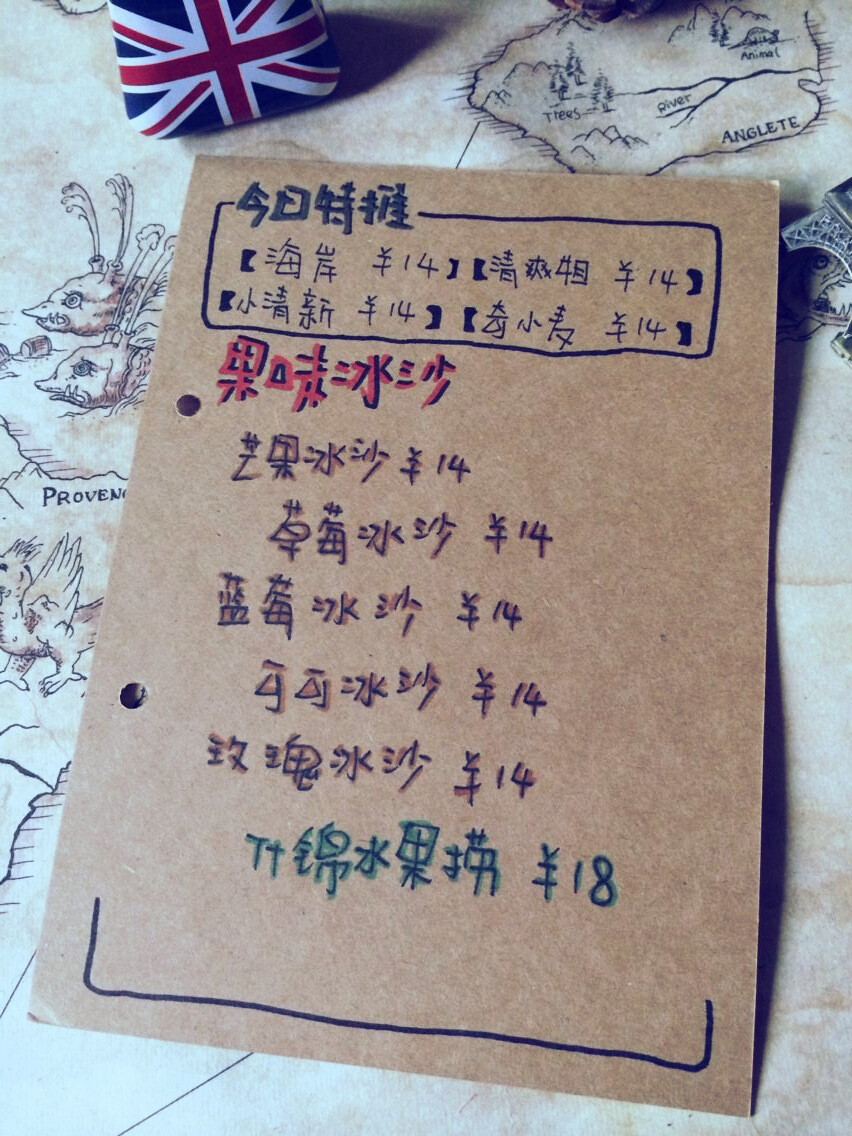 Animal
Trees
River
ANGLETE
今日特推
【海岸 ¥14】【清爽妞 ¥14】
【小清新 ¥14】【奇小麦 ¥14】
果味冰沙
芒果冰沙 ¥14
PROVENC
草莓冰沙 ¥14
蓝莓冰沙 ¥14
可可冰沙 ¥14
玫瑰冰沙 ¥14
什锦水果捞 ¥18